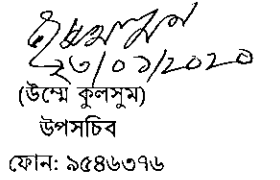 ২৩/০১/২০২০
(উম্মে কুলসুম)
উপসচিব
ফোন: ৯৫৪৬৩৭৬